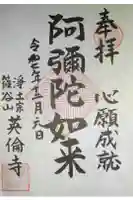 奉拝
心願成就
阿彌陀如来
令和七年十二月一日
浄土宗
篠谷山
英倫寺